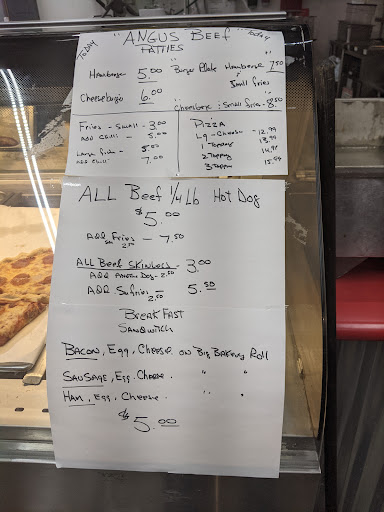 TODAY "ANGUS BEEF" Today
FATTIES
Hamburger 5.00
Cheeseburger 6.00
Burger Plate Hamburger 7.50
Small fries
Cheeseburger : Small fries - 8.50
Fries - Small - 3.00
ADD Chili - 5.00
Large fries - 5.00
ADD Chili - 7.00
PizzA
Lg - Cheese - 12.99
1 Topping 13.99
2 Topping 14.99
3 Topping 15.99
ALL Beef 1/4 Lb Hot Dog
$5.00
ADD Sm Fries 2.50 - 7.50
ALL Beef SKINLess - 3.00
ADD Another Dog - 2.50
ADD Sm fries 2.50 - 5.50
BreakFAST
SANDwitch
BACON, Egg, Cheese on Big Bakery Roll
SAUSAGE, Egg, Cheese. " "
HAM, Egg, Cheese. " "
$5.00